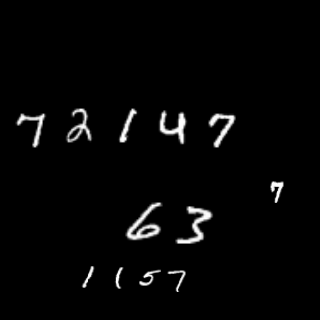 72147
7
63
1157